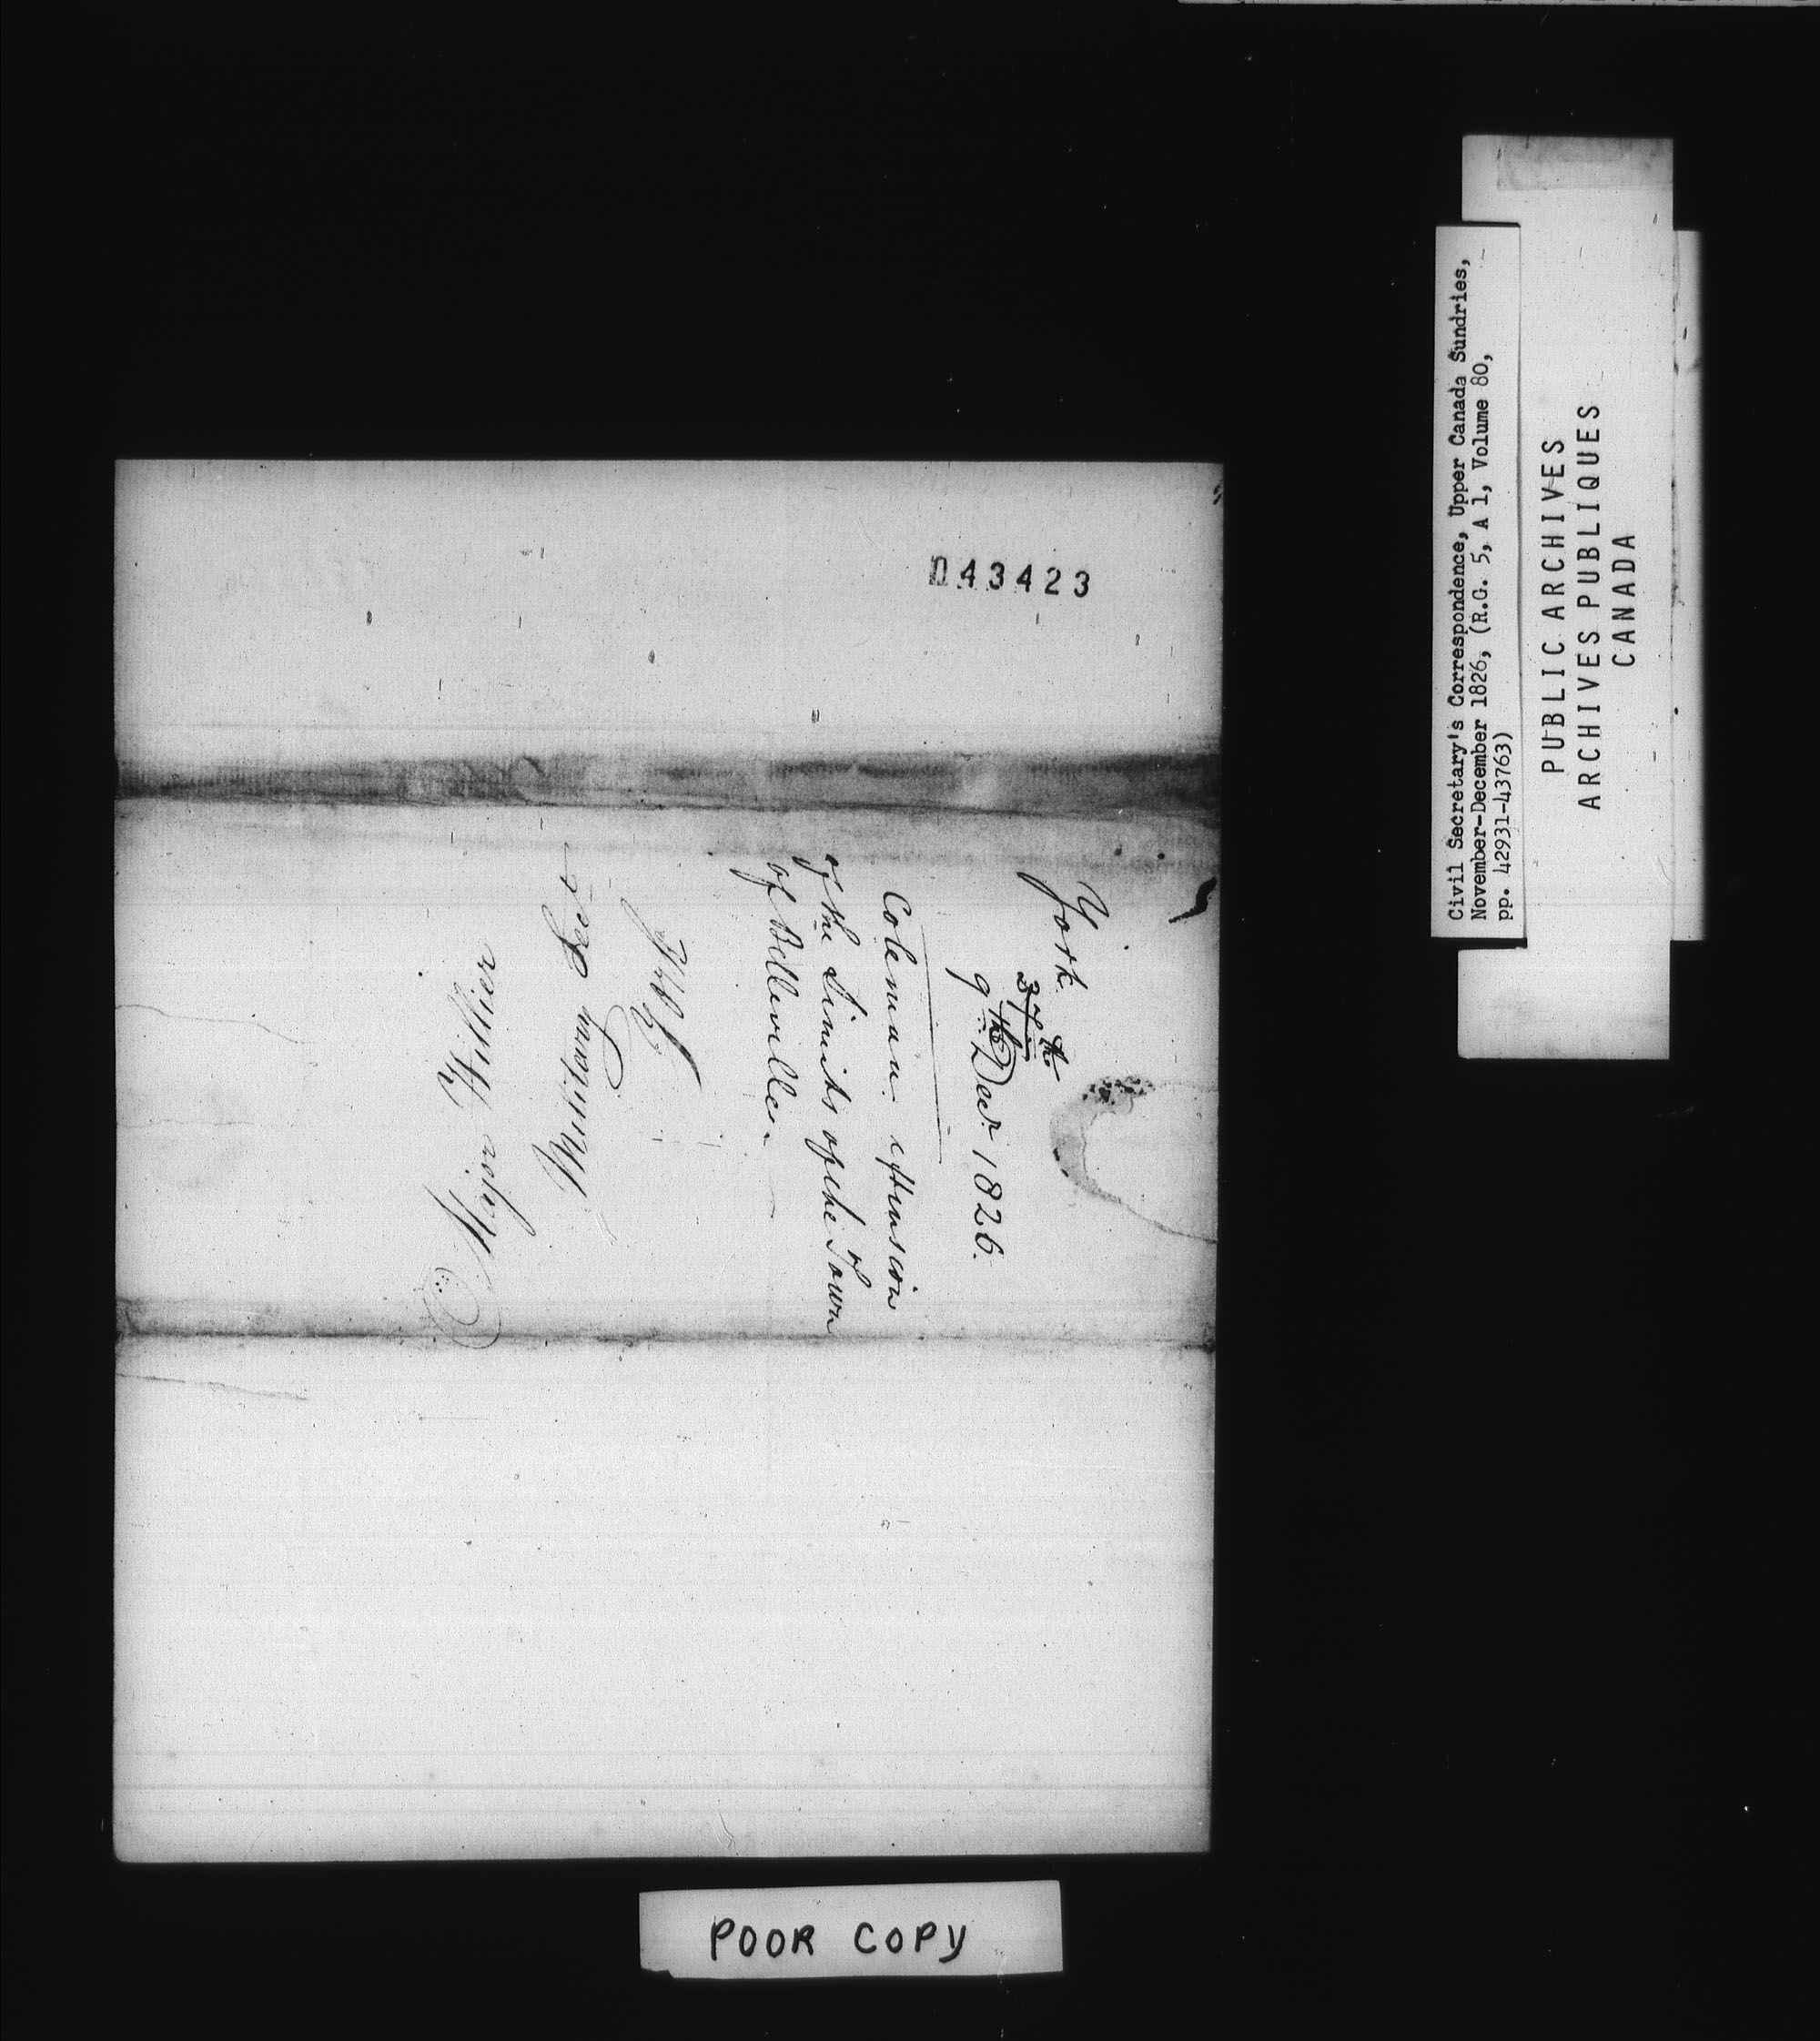 043423
York
37th
9th Decr 1826.
Coleman extension
of the Limits of the Town
of Belleville.
Major Hillier
Civil Secretary's Correspondence, Upper Canada Sundries,
November-December 1826, (R.G. 5, A 1, Volume 80,
pp. 42931-43763)
PUBLIC ARCHIVES
ARCHIVES PUBLIQUES
CANADA
POOR COPY